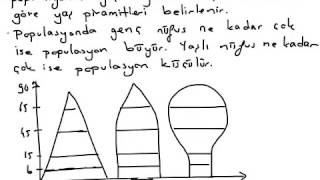 göre yaş piramitleri belirlenir.
• Populasyonda genç nüfus ne kadar çok
ise populasyon büyür. Yaşlı nüfus ne kadar
çok ise populasyon küçülür.
90
65
45
15
6